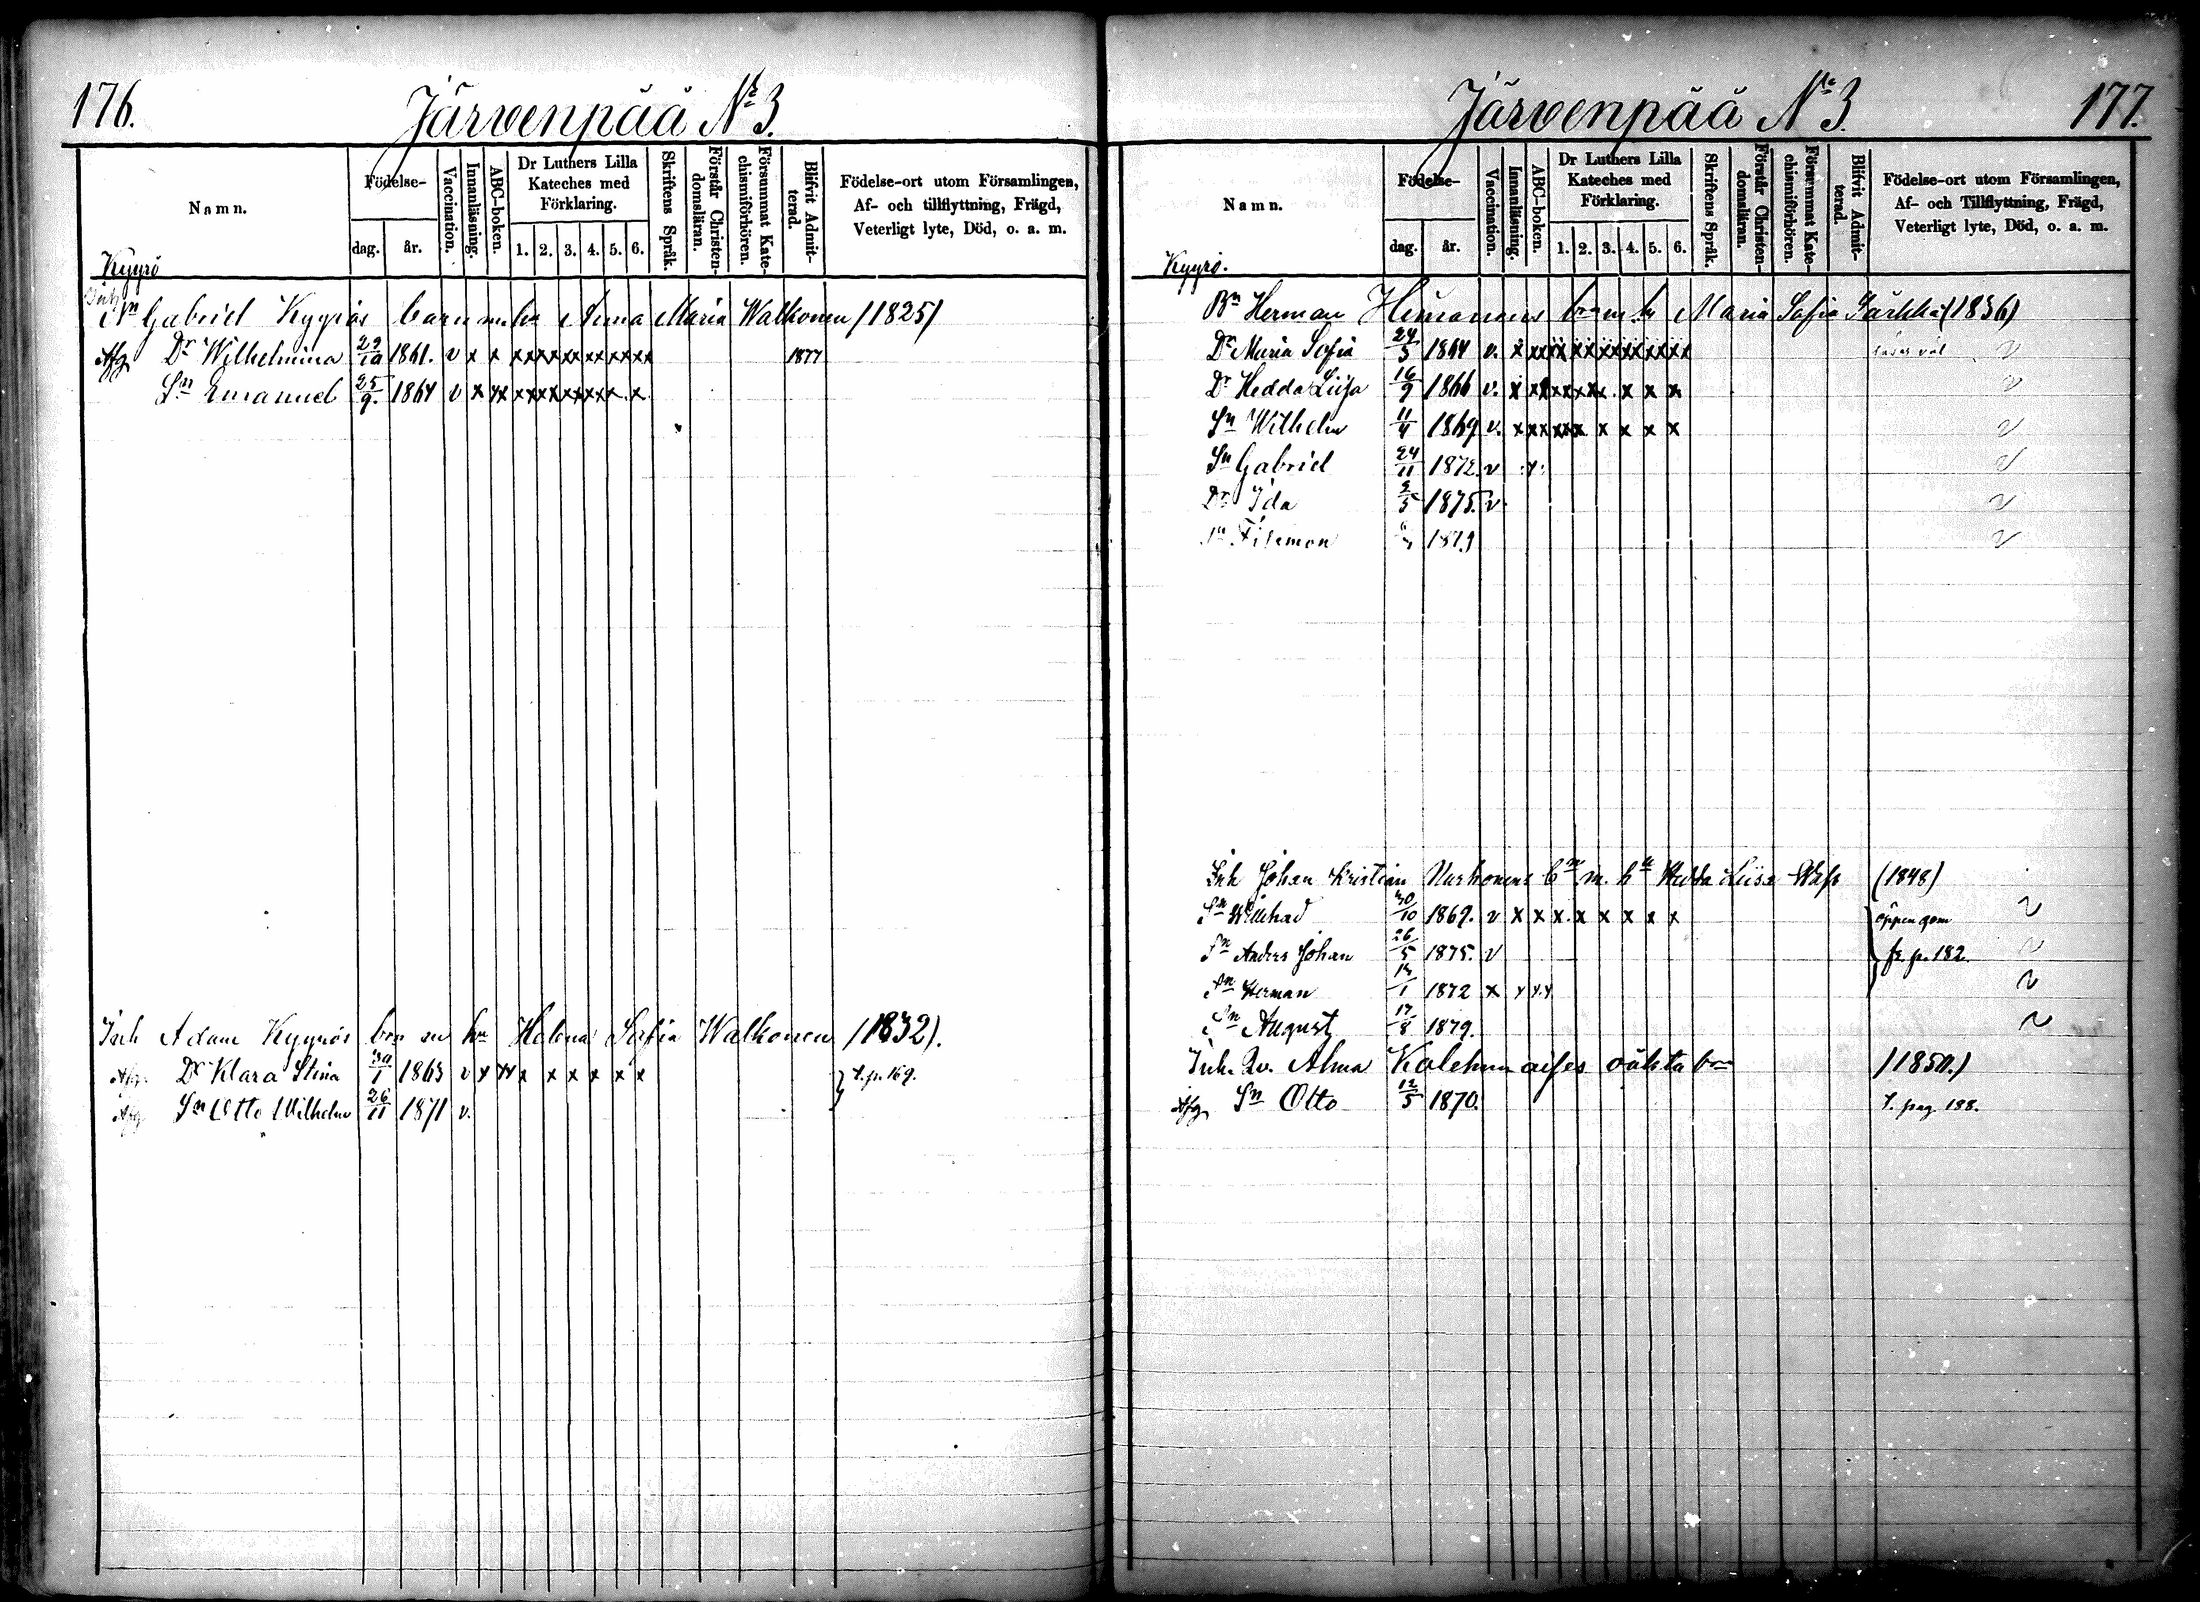 176.
Järvenpää No 3.
Namn.
Födelse-
dag.
år.
Vaccination.
Innanläsning.
ABC-boken.
Dr Luthers Lilla
Kateches med
Förklaring.
1. 2. 3. 4. 5. 6.
Skriftens Språk.
Förstår Christen-
domsläran.
Försummat Kate-
chismiförhören.
Blifvit Admit-
terad.
Födelse-ort utom Församlingen,
Af- och tillflyttning, Frägd,
Veterligt lyte, Död, o. a. m.
Kyyrö
Gabriel Kyyrös barn m hu Anna Maria Walkonen (1825)
Afg Dr Wilhelmina 29/10 1861. v x x xxxxxxxxxxxx 1877
Sn Emanuel 25/9. 1864 v x xx xxxxxxxxx. x
Inh Adam Kyyrös brn m hu Helena Sofia Walkonen (1832).
Afg. Dr Klara Stina 30/1 1863 v x xx x x x x x x } t. p. 169.
Afg Sn Otto Wilhelm 26/11 1871 v.
Järvenpää No 3.
177.
Namn.
Födelse-
dag.
år.
Vaccination.
Innanläsning.
ABC-boken.
Dr Luthers Lilla
Kateches med
Förklaring.
1. 2. 3. 4. 5. 6.
Skriftens Språk.
Förstår Christen-
domsläran.
Försummat Kate-
chismiförhören.
Blifvit Admit-
terad.
Födelse-ort utom Församlingen,
Af- och Tillflyttning, Frägd,
Veterligt lyte, Död, o. a. m.
Kyyrö.
Bn Herman Heimonens brn m. hu Maria Sofia (1836)
Dr Maria Sofia 24/5 1864 v. x xxxxxxxxxxxxx läser väl v
Dr Hedda Liisa 16/9 1866 v. x xxxxxxx. x x x v
Sn Wilhelm 11/4 1869 v. x xxxxxx x x x x v
Sn Gabriel 24/11 1872. v x v
Dr Ida 2/5 1875. v v
Sn Filemon 1879 v
Inh Johan Kristian Nurhonens bn m. hu Hedda Liisa (1848)
Sn Willehad 30/10 1869. v x x x x x x x x öppen gom v
Sn Anders Johan 26/5 1875. v } fr. p. 182. v
Sn Herman 1872 x x x x v
Sn August 17/8 1879. v
Inh. Qv. Alma Kolehmaises oäkta bn (1850.)
Afg Sn Otto 12/5 1870. t. pag. 188.